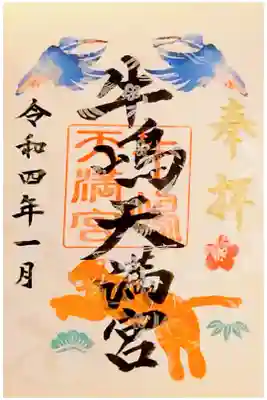 奉拝
牛島天満宮
天満宮
令和四年一月